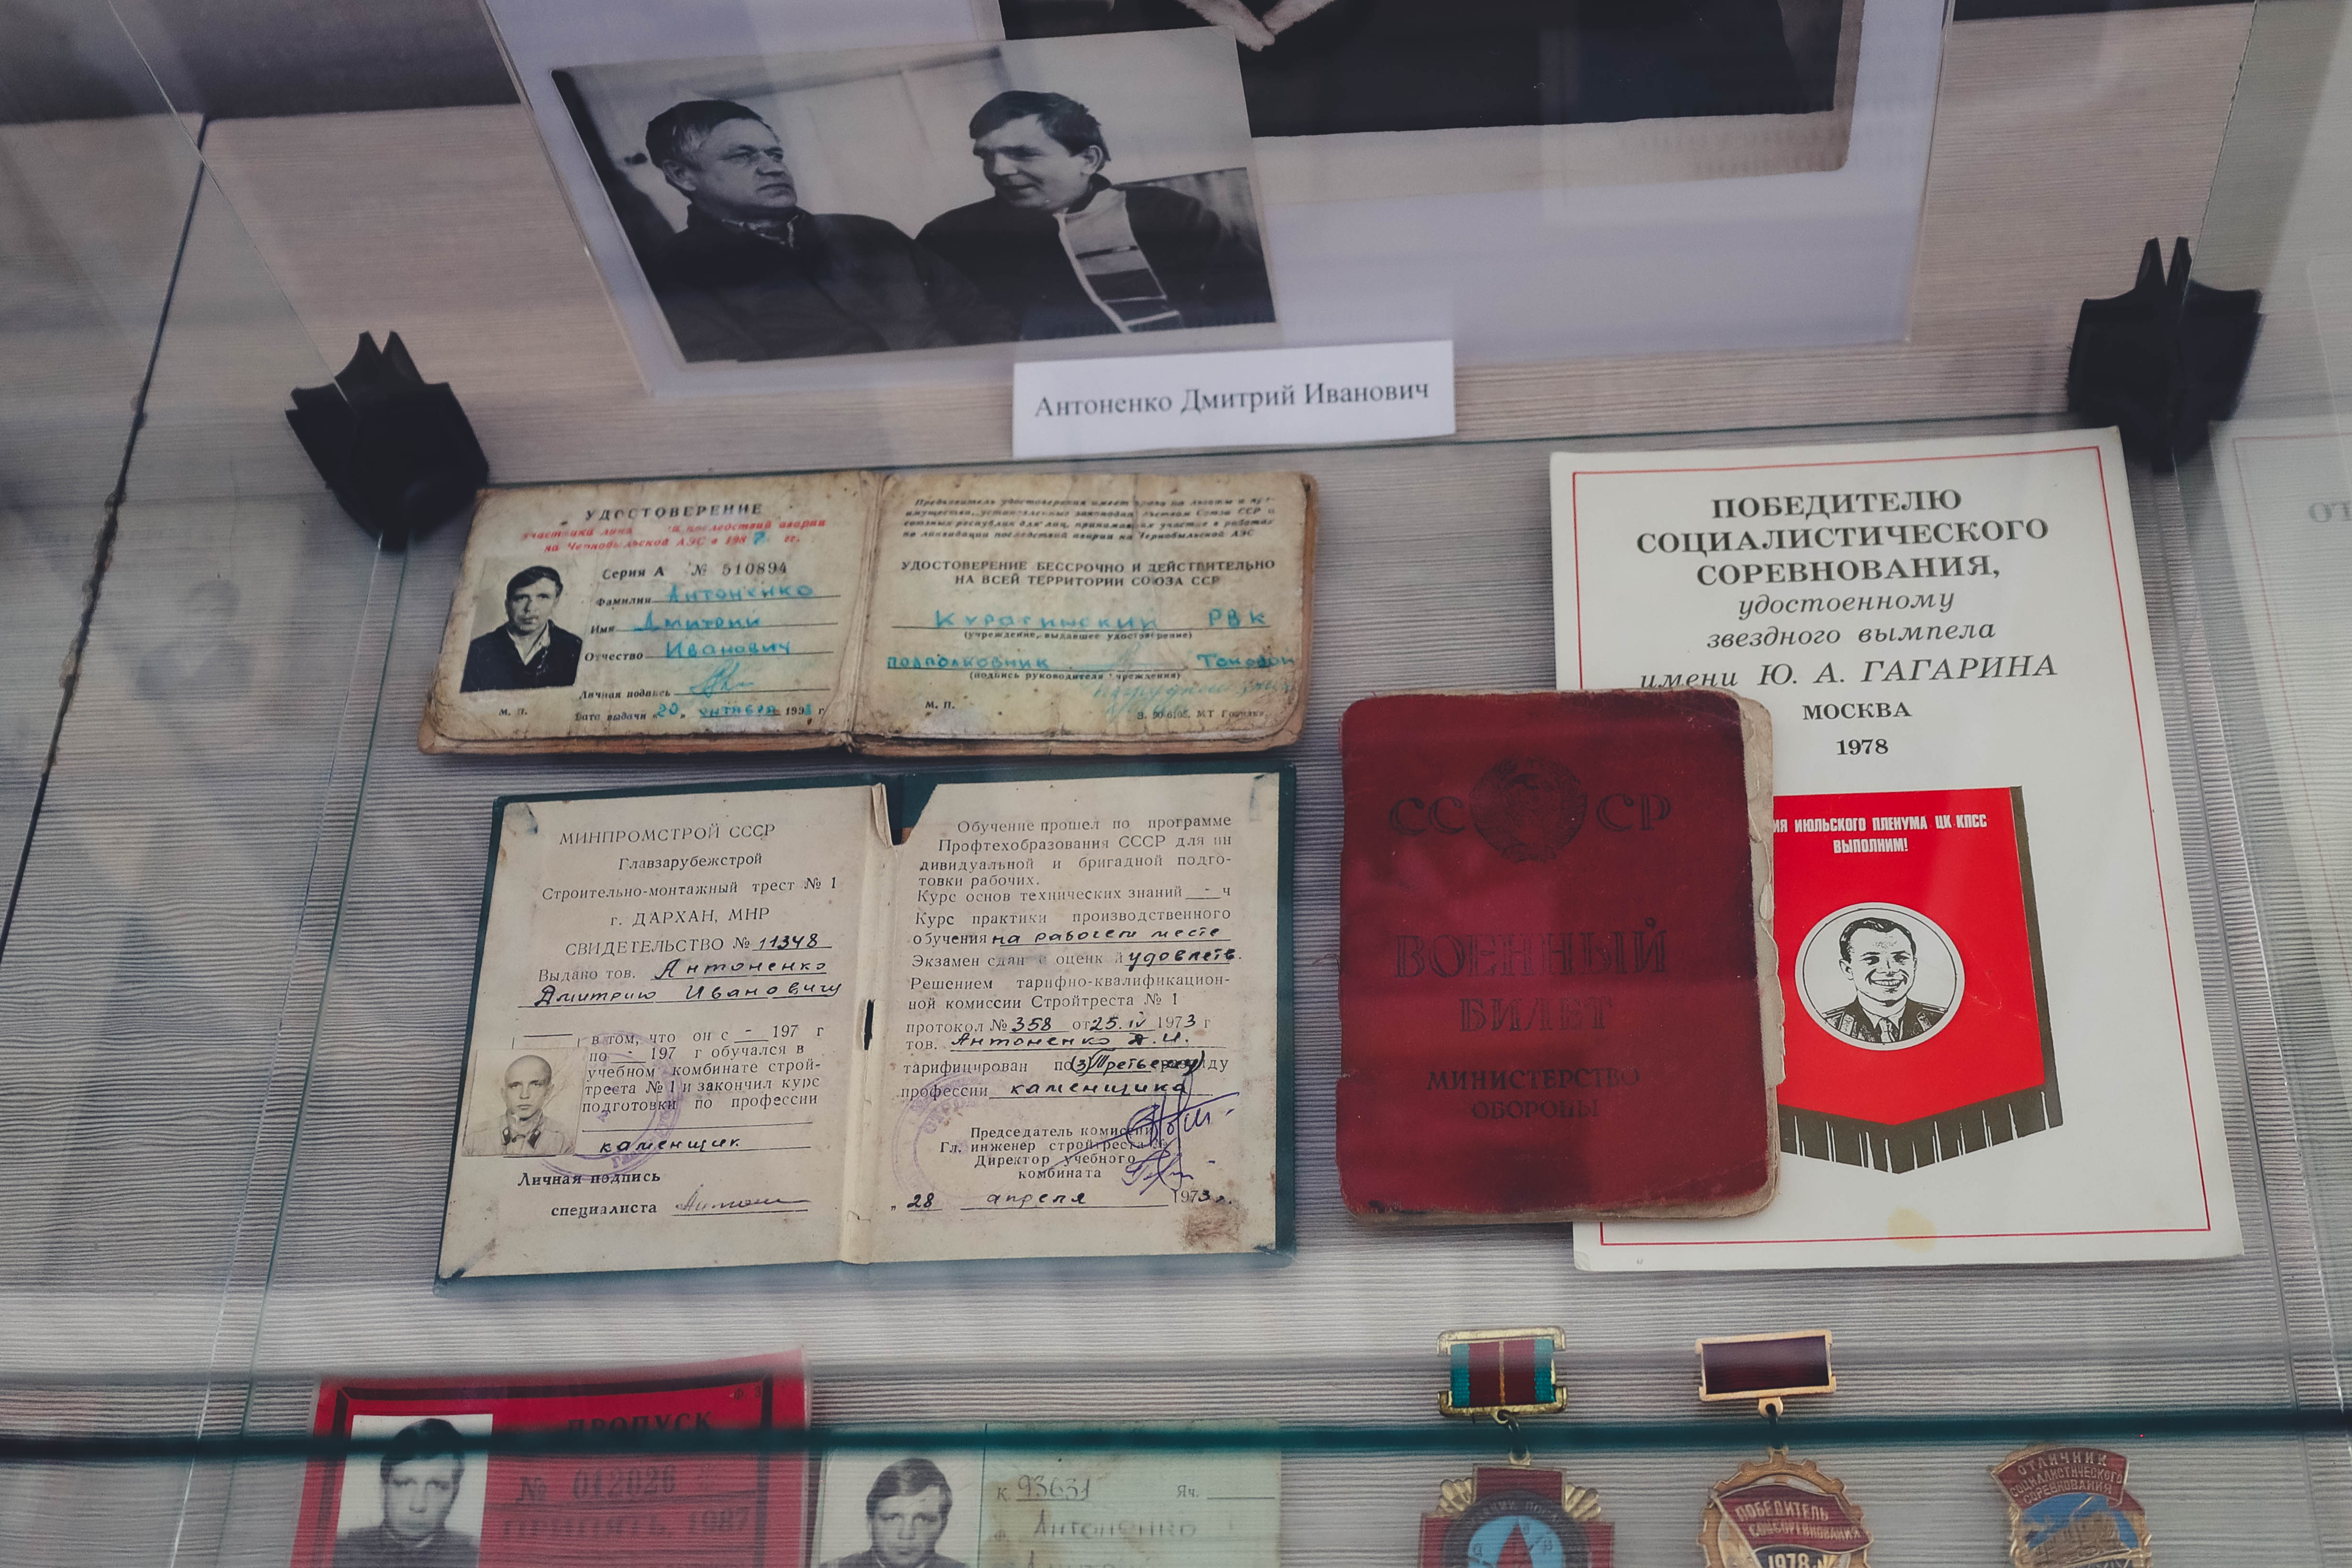 Антоненко Дмитрий Иванович
УДОСТОВЕРЕНИЕ
участника последствий аварии
на Чернобыльской АЭС в 1987 гг.
Серия А № 510894
Фамилия Антоненко
Имя Дмитрий
Отчество Иванович
Личная подпись
М. П.
Дата выдачи „20„ октября 199 г.
Предъявитель удостоверения имеет права на льготы и пре-
имущества, установленные законодательством Союза ССР и
союзных республик для лиц, принимавших участие в работах
по ликвидации последствий аварии на Чернобыльской АЭС
УДОСТОВЕРЕНИЕ БЕССРОЧНО И ДЕЙСТВИТЕЛЬНО
НА ВСЕЙ ТЕРРИТОРИИ СОЮЗА ССР
Курагинский РВК
(учреждение, выдавшее удостоверение)
подполковник
(подпись руководителя учреждения)
М. П.
МИНПРОМСТРОЙ СССР
Главзарубежстрой
Строительно-монтажный трест № 1
г. ДАРХАН, МНР
СВИДЕТЕЛЬСТВО № 11348
Выдано тов. Антоненко
Дмитрию Ивановичу
в том, что он с - 197 г
по - 197 г обучался в
учебном комбинате строй-
треста № 1 и закончил курс
подготовки по профессии
каменщик
Личная подпись
специалиста
Обучение прошел по программе
Профтехобразования СССР для ин
дивидуальной и бригадной подго-
товки рабочих.
Курс основ технических знаний - ч
Курс практики производственного
обучения на рабочем месте
Экзамен сдан с оценкой удовлетв.
Решением тарифно-квалификацион-
ной комиссии Стройтреста № 1
протокол № 358 от 25.IV 1973 г
тов. Антоненко Д.И.
тарифицирован по (3) Третьему разряду
профессии каменщика
Председатель комиссии
Гл. инженер стройтреста №
Директор учебного
комбината
„28 апреля 1973 г.
ПОБЕДИТЕЛЮ
СОЦИАЛИСТИЧЕСКОГО
СОРЕВНОВАНИЯ,
удостоенному
звездного вымпела
имени Ю. А. ГАГАРИНА
МОСКВА
1978
ИЯ ИЮЛЬСКОГО ПЛЕНУМА ЦК КПСС
ВЫПОЛНИМ!
СССР
ВОЕННЫЙ
БИЛЕТ
МИНИСТЕРСТВО
ОБОРОНЫ
ПРОПУСК
№ 012026
ПРИПЯТЬ, 1987
к. 93631 Яч.
Антоненко
ПОБЕДИТЕЛЬ
СОЦСОРЕВНОВАНИЯ
1978
ОТЛИЧНИК
СОЦИАЛИСТИЧЕСКОГО
СОРЕВНОВАНИЯ